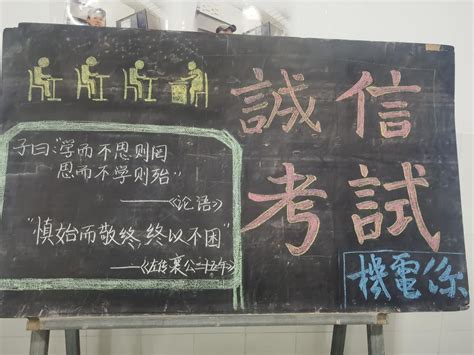 誠信
考試
機電係
子曰:“学而不思则罔
思而不学则殆”
——《论语》
“慎始而敬终,终以不困”
——《左传襄公二十五年》